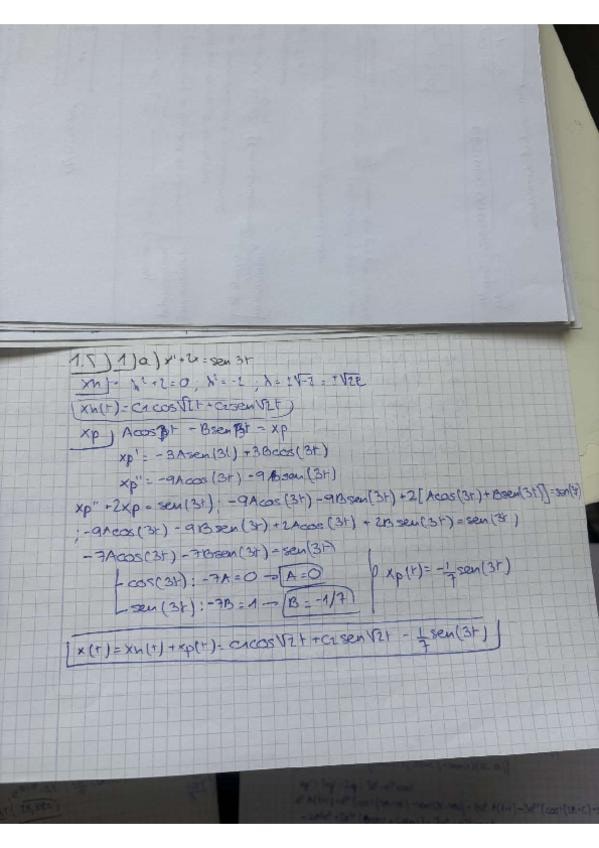 1.5) 1) a) x'' + 2x = sen 3t
xh] - λ² + 2 = 0, λ² = -2 ; λ = ±√-2 = ±√2i
xh(t) = c1 cos√2t + c2 sen√2t
xp] Acos3t - Bsen3t = xp
xp' = -3Asen(3t) + 3Bcos(3t)
xp'' = -9Acos(3t) - 9Bsen(3t)
xp'' + 2xp = sen(3t) ; -9Acos(3t) - 9Bsen(3t) + 2[Acos(3t) + Bsen(3t)] = sen(3t)
; -9Acos(3t) - 9Bsen(3t) + 2Acos(3t) + 2Bsen(3t) = sen(3t)
-7Acos(3t) - 7Bsen(3t) = sen(3t)
cos(3t) : -7A = 0 → A = 0
sen(3t) : -7B = 1 → B = -1/7
xp(t) = -1/7 sen(3t)
x(t) = xh(t) + xp(t) = c1 cos√2t + c2 sen√2t - 1/7 sen(3t)